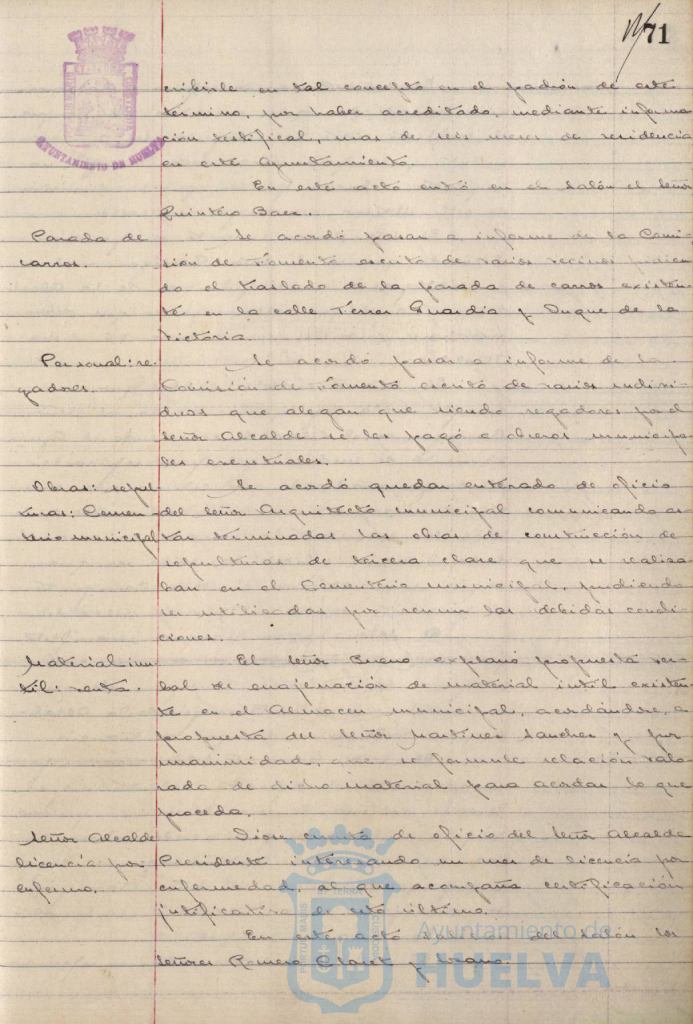 71
AYUNTAMIENTO DE HUELVA
cribirle en tal concepto en el padrón de este
término, por haber acreditado, mediante informa
ción testifical, mas de seis meses de residencia
en este Ayuntamiento.
En este acto entró en el salón el Señor
Quintero Baez.
Parada de
carros.
Se acordó pasar a informe de la Comi
sión de Fomento escrito de varios vecinos pidien
do el traslado de la parada de carros existen
te en la calle Ferrer Guardia y Duque de la
Victoria.
Personal: re-
gadores.
Se acordó pasar a informe de la
Comisión de Fomento escrito de varios indivi-
duos que alegan que siendo regadores por el
Señor Alcalde se les pagó a obreros municipa
les eventuales.
Obras: sepul-
turas: Cemen-
terio municipal
Se acordó quedar enterado de oficio
del Señor Arquitecto municipal comunicando es
tar terminadas las obras de construcción de
sepulturas de tercera clase que se realiza
ban en el Cementerio municipal, pudiendo
ser utilizadas por reunir las debidas condi
ciones.
Material inu-
til: venta.
El Señor Bueno explanó propuesta ver-
bal de enajenación de material inútil existen
te en el Almacen municipal, acordándose, a
propuesta del Señor Martínez Sanchez y por
unanimidad, que se formule relación valo
rada de dicho material para acordar lo que
proceda.
Señor Alcalde
licencia por
enfermo.
Diose cuenta de oficio del Señor Alcalde
Presidente interesando un mes de licencia por
enfermedad, al que acompaña certificación
justificativa de esto último.
En este acto del salón los
Señores Romero Claret y
Ayuntamiento de
HUELVA